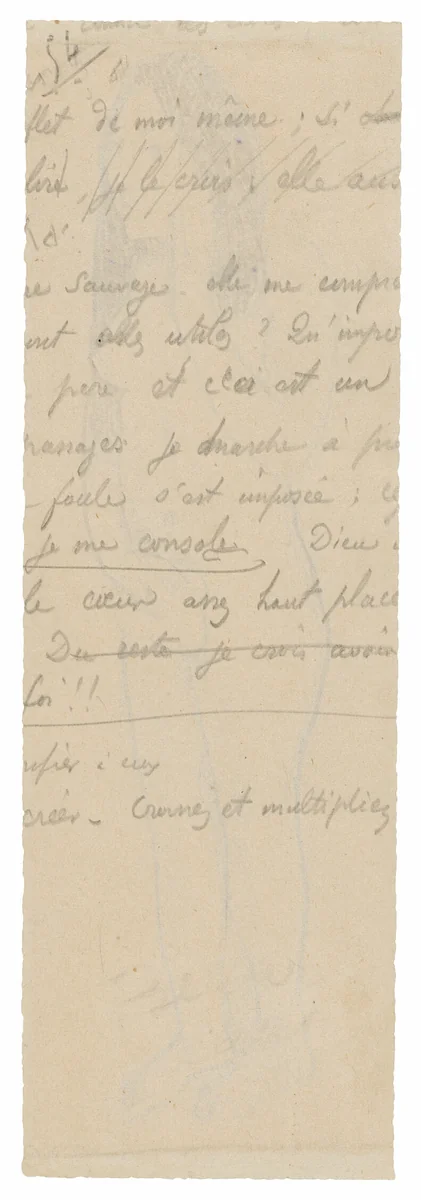 flet de moi même ; si
lire, je le crois ; elle aus
re sauvage. elle me compr
ont elles utiles ? Qu'impor
père et ceci est un
passages je marche à pr
foule s'est imposée ; ce
je me console Dieu
le cœur assez haut placé
Du reste je crois avoir
foi !!
créer - Croissez et multipliez